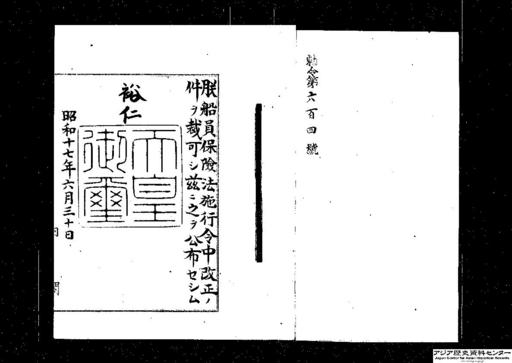 勅令第六百四號
朕船員保險法施行令中改正ノ
件ヲ裁可シ茲ニ之ヲ公布セシム
裕仁
天皇
御璽
昭和十七年六月三十日
アジア歴史資料センター
Japan Center for Asian Historical Records